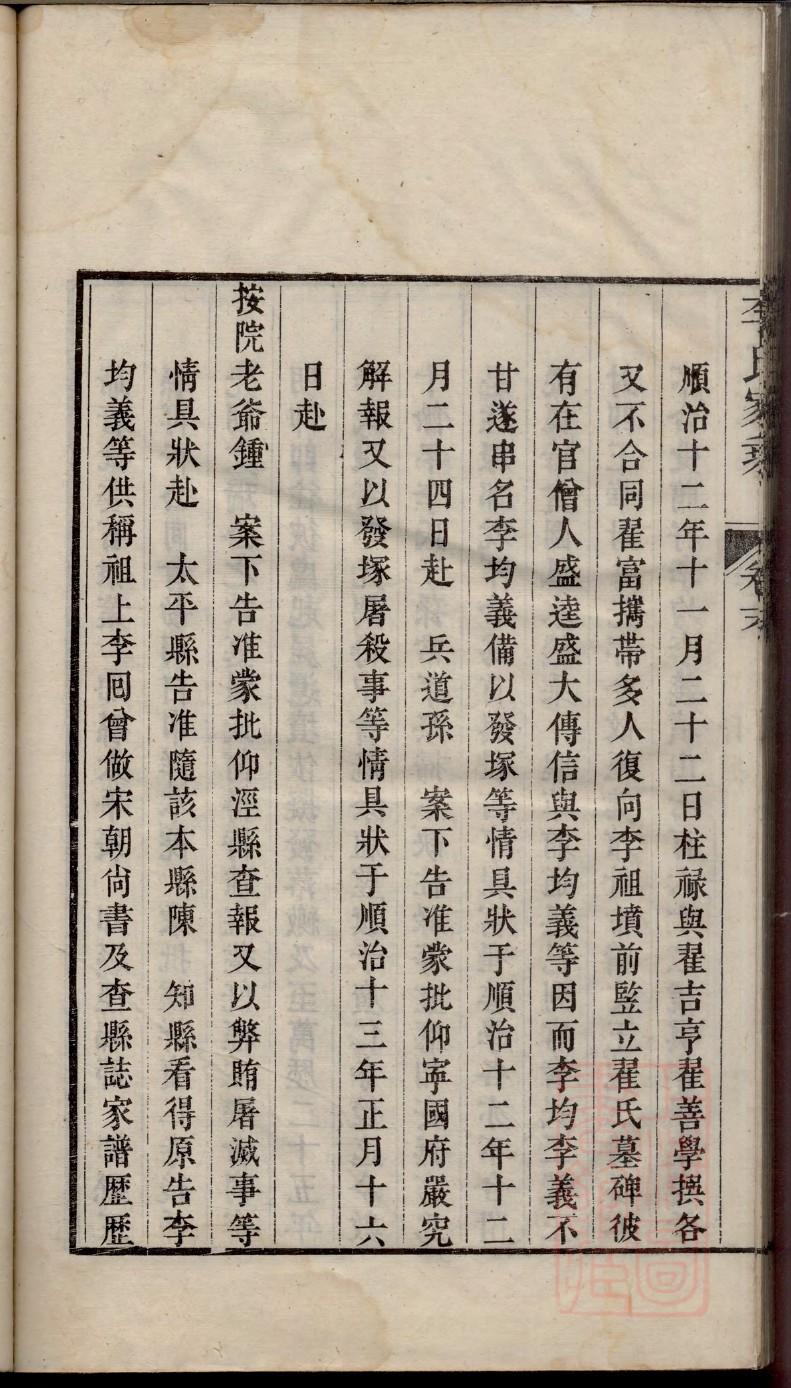 李氏家乘 卷末
順治十二年十一月二十二日柱祿與翟吉亨翟善學㩀各
又不合同翟富攜帶多人復向李祖墳前監立翟氏墓碑彼
有在官僧人盛逵盛大傳信與李均義等因而李均李義不
甘遂串名李均義備以發塚等情具狀于順治十二年十二
月二十四日赴 兵道孫 案下告准蒙批仰寕國府嚴究
解報又以發塚屠殺事等情具狀于順治十三年正月十六
日赴
按院老爺鍾 案下告准蒙批仰涇縣查報又以弊賄屠滅事等
情具狀赴 太平縣告准隨該本縣陳 知縣看得原告李
均義等供稱祖上李囘曾做宋朝尙書及查縣誌家譜歷歷